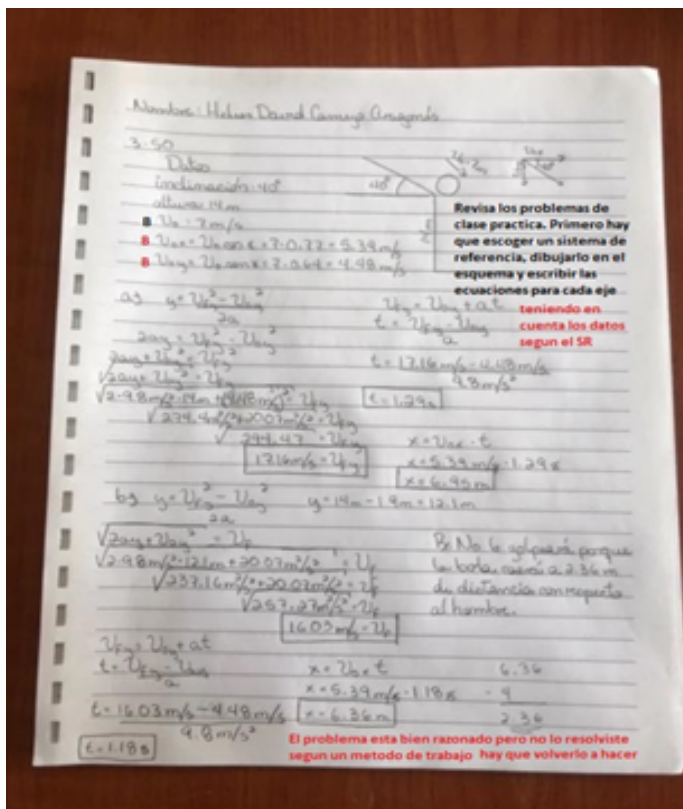 Nombre: Helen David Camejo Aragonés
3.50
Datos
inclinación: 40°
altura: 14 m
B U₀ = 7 m/s
B. U₀ₓ = U₀ cos α = 7 · 0.77 = 5.39 m/s
B. U₀y = U₀ sen α = 7 · 0.64 = 4.48 m/s
40°
Revisa los problemas de
clase practica. Primero hay
que escoger un sistema de
referencia, dibujarlo en el
esquema y escribir las
ecuaciones para cada eje
teniendo en
cuenta los datos
segun el SR
a) y = Ufy² - U₀y²
2a
2ay = Ufy² - U₀y²
2ay + U₀y² = Ufy²
√2ay + U₀y² = Ufy
√2 · 9.8 m/s² · 14 m + (4.48 m/s)² = Ufy
√274.4 m²/s² + 20.07 m²/s² = Ufy
√294.47 = Ufy
17.16 m/s = Ufy
Ufy = U₀y + at
t = Ufy - U₀y
a
t = 17.16 m/s - 4.48 m/s
9.8 m/s²
t = 1.29 s
x = U₀ₓ · t
x = 5.39 m/s · 1.29 s
x = 6.95 m
b) y = Ufy² - U₀y²
2a
y = 14 m - 1.9 m = 12.1 m
√2ay + U₀y² = Uf
√2 · 9.8 m/s² · 12.1 m + 20.07 m²/s² = Uf
√237.16 m²/s² + 20.07 m²/s² = Uf
√257.27 m²/s² = Uf
16.03 m/s = Uf
R: No le golpeará porque
la bola caerá a 2.36 m
de distancia con respecto
al hombre.
Ufy = U₀y + at
t = Ufy - U₀y
a
t = 16.03 m/s - 4.48 m/s
9.8 m/s²
t = 1.18 s
x = U₀ₓ t
x = 5.39 m/s · 1.18 s
x = 6.36 m
6.36
- 4
2.36
El problema esta bien razonado pero no lo resolviste
segun un metodo de trabajo hay que volverlo a hacer